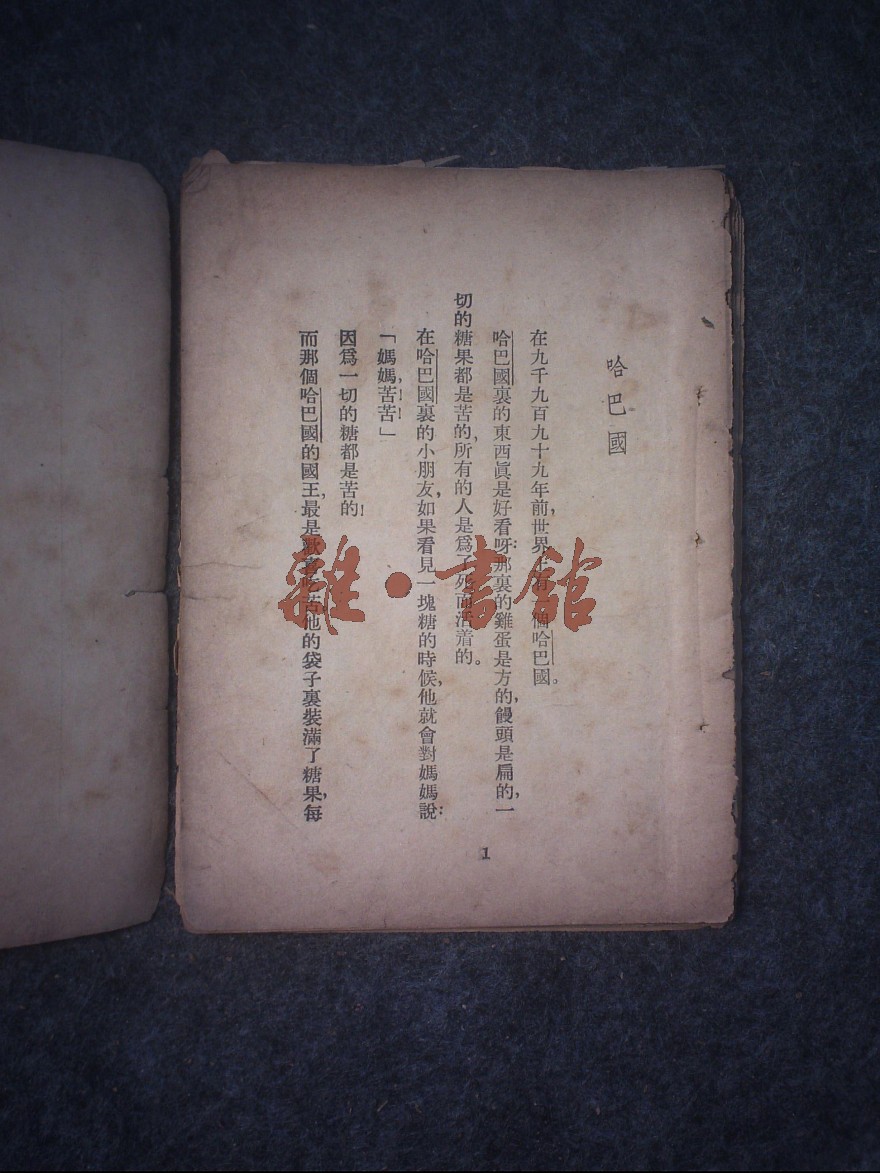 哈巴國
在九千九百九十九年前，世界上有一個哈巴國。
哈巴國裏的東西眞是好看呀！那裏的雞蛋是方的，饅頭是扁的，一
切的糖果都是苦的，所有的人是爲了死而活着的。
在哈巴國裏的小朋友，如果看見一塊糖的時候，他就會對媽媽說：
「媽媽，苦！苦！」
因爲一切的糖都是苦的！
而那個哈巴國的國王，最是歡喜吃苦，他的袋子裏裝滿了糖果，每
1
雜·書館